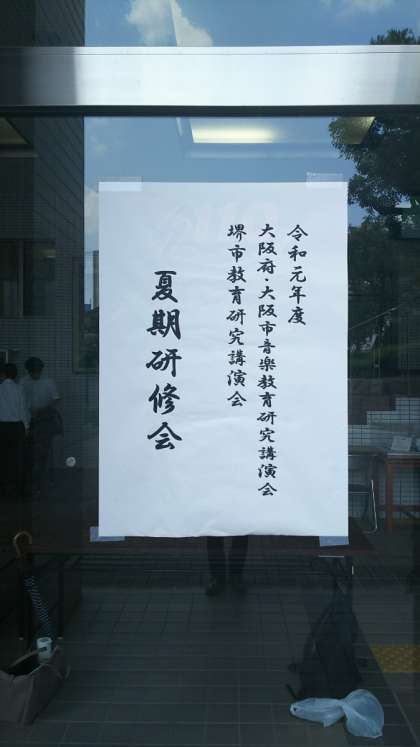 令和元年度
大阪府・大阪市音楽教育研究講演会
堺市教育研究講演会
夏期研修会